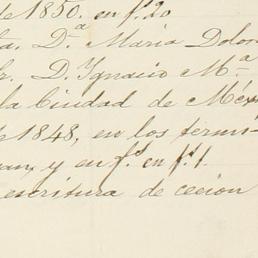 de 1850. en f.s 20
ta. D.a Maria Dolor
Sr. D. Ignacio M.a
la Ciudad de Méx
de 1848, en los termi
y en f.s en f.s 1.
escritura de cecion